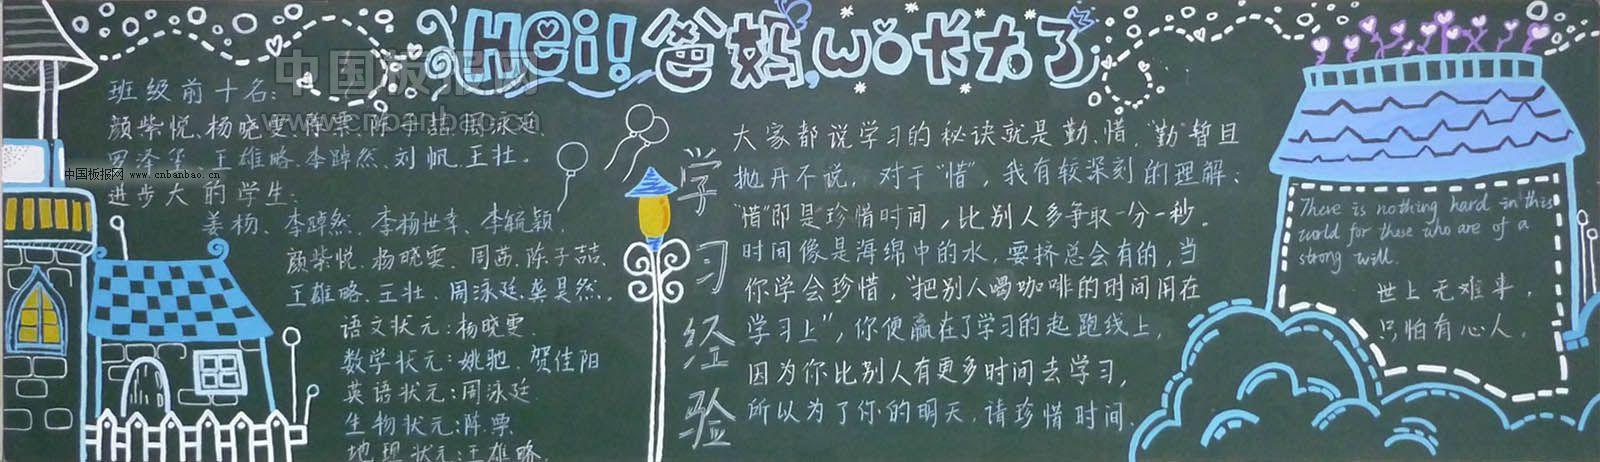 Hei!爸妈,wo长大了
中国板报网
www.cnbanbao.cn
中国板报网 www.cnbanbao.cn
班级前十名:
颜紫悦、杨晓雯、陈票、陈子喆、周泳廷
王雄略、李踔然、刘帆、王壮。
进步大的学生:
姜杨、李踔然、李杨世幸、李毓颖、
颜紫悦、杨晓雯、周茜、陈子喆、
王雄略、王壮、周泳廷、龚昊然。
语文状元:杨晓雯.
数学状元:姚驰、贺佳阳
英语状元:周泳廷.
生物状元:陈票
地理状元:王雄略.
学习经验
大家都说学习的秘诀就是勤、惜,"勤"暂且
抛开不说,对于"惜",我有较深刻的理解:
"惜"即是珍惜时间,比别人多争取一分一秒.
时间像是海绵中的水,要挤总会有的,当
你学会珍惜,"把别人喝咖啡的时间用在
学习上",你便赢在了学习的起跑线上,
因为你比别人有更多时间去学习,
所以为了你的明天,请珍惜时间.
There is nothing hard in this
world for these who are of a
strong well.
世上无难事,
只怕有心人.